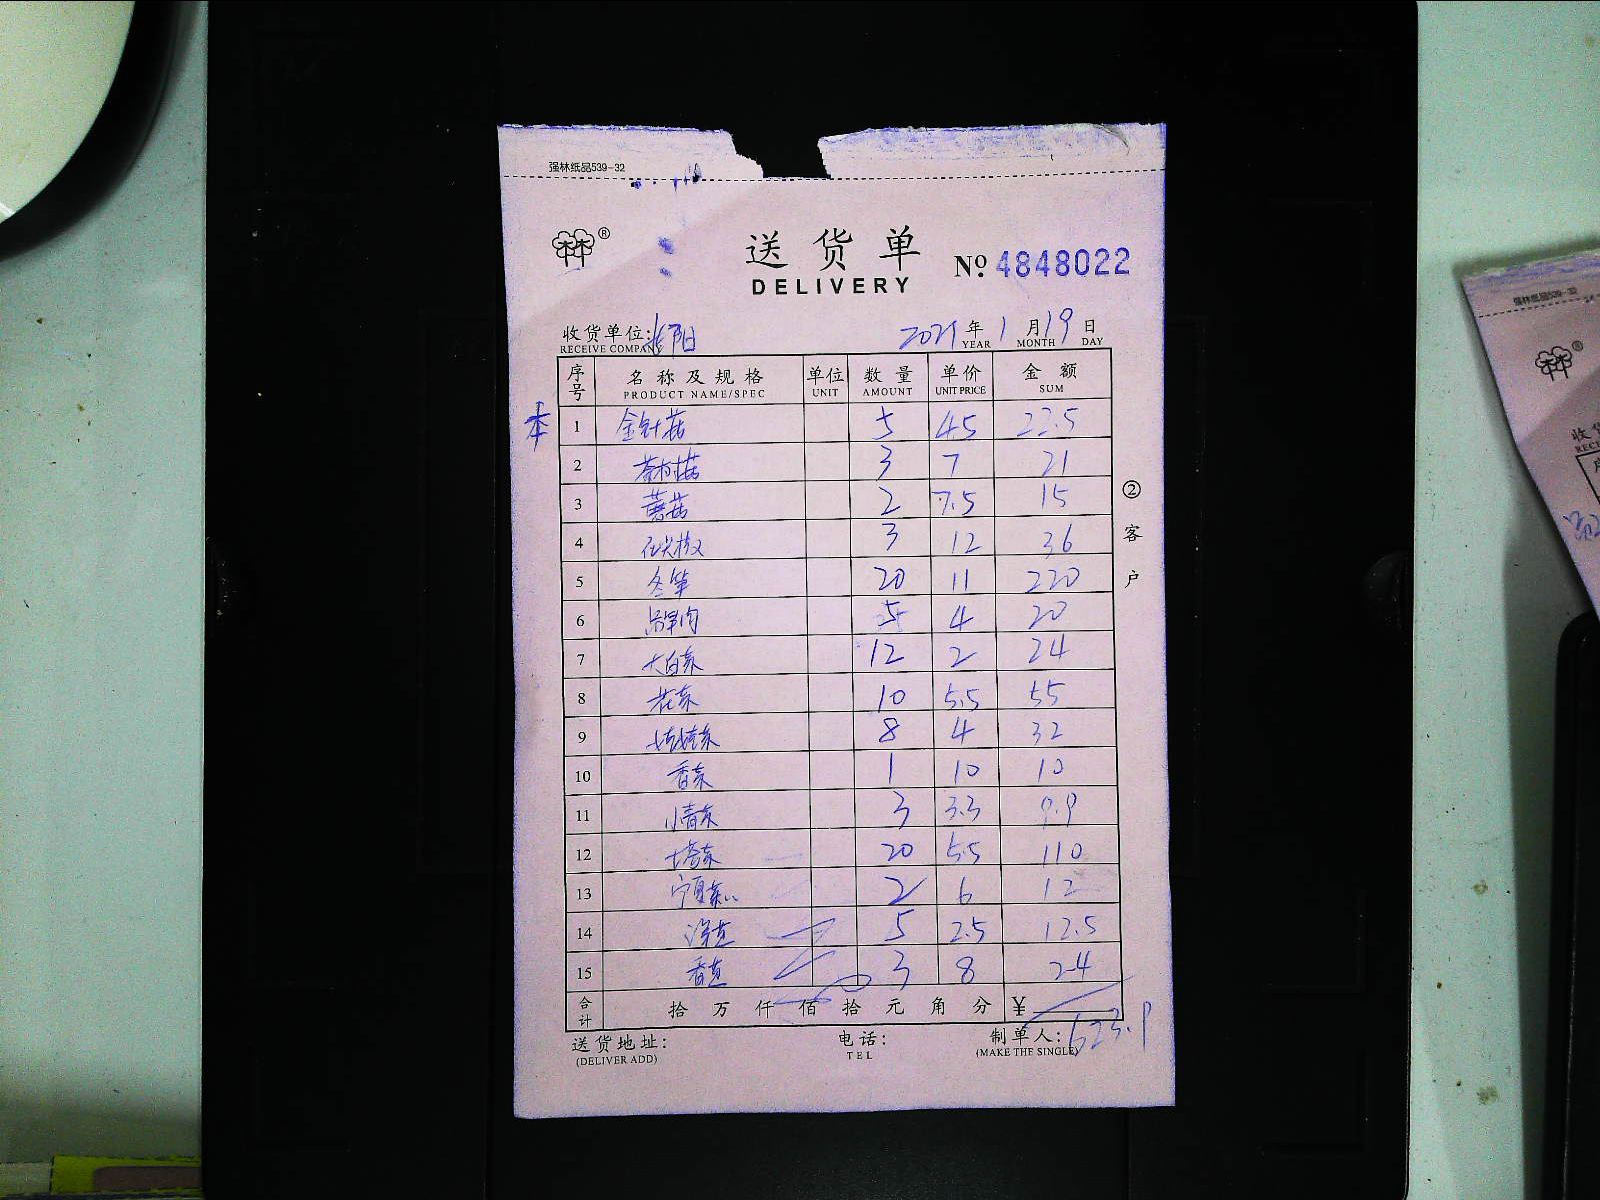 强林纸品539-32
林®
送货单
DELIVERY
No. 4848022
收货单位: 阳 2021年1月19日
RECEIVE COMPANY YEAR MONTH DAY
序号 名称及规格 单位 数量 单价 金额
PRODUCT NAME/SPEC UNIT AMOUNT UNIT PRICE SUM
本 1 金针菇 5 4.5 22.5
2 茶树菇 3 7 21
3 蘑菇 2 7.5 15
4 3 12 36
5 冬笋 20 11 220
6 5 4 20
7 大白菜 12 2 24
8 花菜 10 5.5 55
9 8 4 32
10 香菜 1 10 10
11 小青菜 3 3.3 9.9
12 塔菜 20 5.5 110
13 宁夏菜心 2 6 12
14 5 2.5 12.5
15 香葱 3 8 24
合计 拾万仟佰拾元角分 ¥ 623.9
送货地址: 电话: 制单人:
(DELIVER ADD) TEL (MAKE THE SINGLE)
②客户
强林纸品539-32